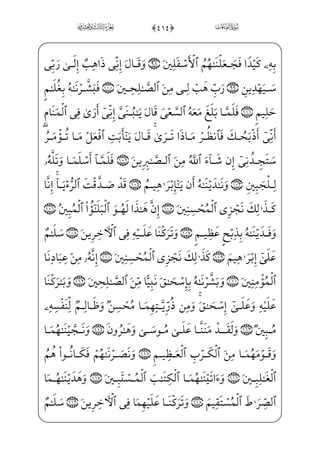 سورة الصافات ﴿٤١٤﴾ الجزء الثالث والعشرون
بِهِۦ كَيْدًا فَجَعَلْنَٰهُمُ ٱلْأَسْفَلِينَ ﴿٩٨﴾ وَقَالَ إِنِّى ذَاهِبٌ إِلَىٰ رَبِّى
سَيَهْدِينِ ﴿٩٩﴾ رَبِّ هَبْ لِى مِنَ ٱلصَّٰلِحِينَ ﴿١٠٠﴾ فَبَشَّرْنَٰهُ بِغُلَٰمٍ
حَلِيمٍ ﴿١٠١﴾ فَلَمَّا بَلَغَ مَعَهُ ٱلسَّعْىَ قَالَ يَٰبُنَىَّ إِنِّىٓ أَرَىٰ فِى ٱلْمَنَامِ
أَنِّىٓ أَذْبَحُكَ فَٱنظُرْ مَاذَا تَرَىٰ ۚ قَالَ يَٰٓأَبَتِ ٱفْعَلْ مَا تُؤْمَرُ ۖ
سَتَجِدُنِىٓ إِن شَآءَ ٱللَّهُ مِنَ ٱلصَّٰبِرِينَ ﴿١٠٢﴾ فَلَمَّآ أَسْلَمَا وَتَلَّهُۥ
لِلْجَبِينِ ﴿١٠٣﴾ وَنَٰدَيْنَٰهُ أَن يَٰٓإِبْرَٰهِيمُ ﴿١٠٤﴾ قَدْ صَدَّقْتَ ٱلرُّءْيَآ ۚ إِنَّا
كَذَٰلِكَ نَجْزِى ٱلْمُحْسِنِينَ ﴿١٠٥﴾ إِنَّ هَٰذَا لَهُوَ ٱلْبَلَٰٓؤُا۟ ٱلْمُبِينُ ﴿١٠٦﴾
وَفَدَيْنَٰهُ بِذِبْحٍ عَظِيمٍ ﴿١٠٧﴾ وَتَرَكْنَا عَلَيْهِ فِى ٱلْءَاخِرِينَ ﴿١٠٨﴾ سَلَٰمٌ
عَلَىٰٓ إِبْرَٰهِيمَ ﴿١٠٩﴾ كَذَٰلِكَ نَجْزِى ٱلْمُحْسِنِينَ ﴿١١٠﴾ إِنَّهُۥ مِنْ عِبَادِنَا
ٱلْمُؤْمِنِينَ ﴿١١١﴾ وَبَشَّرْنَٰهُ بِإِسْحَٰقَ نَبِيًّا مِّنَ ٱلصَّٰلِحِينَ ﴿١١٢﴾ وَبَٰرَكْنَا
عَلَيْهِ وَعَلَىٰٓ إِسْحَٰقَ ۚ وَمِن ذُرِّيَّتِهِمَا مُحْسِنٌ وَظَالِمٌ لِّنَفْسِهِۦ
مُبِينٌ ﴿١١٣﴾ وَلَقَدْ مَنَنَّا عَلَىٰ مُوسَىٰ وَهَٰرُونَ ﴿١١٤﴾ وَنَجَّيْنَٰهُمَا
وَقَوْمَهُمَا مِنَ ٱلْكَرْبِ ٱلْعَظِيمِ ﴿١١٥﴾ وَنَصَرْنَٰهُمْ فَكَانُوا۟ هُمُ
ٱلْغَٰلِبِينَ ﴿١١٦﴾ وَءَاتَيْنَٰهُمَا ٱلْكِتَٰبَ ٱلْمُسْتَبِينَ ﴿١١٧﴾ وَهَدَيْنَٰهُمَا
ٱلصِّرَٰطَ ٱلْمُسْتَقِيمَ ﴿١١٨﴾ وَتَرَكْنَا عَلَيْهِمَا فِى ٱلْءَاخِرِينَ ﴿١١٩﴾ سَلَٰمٌ